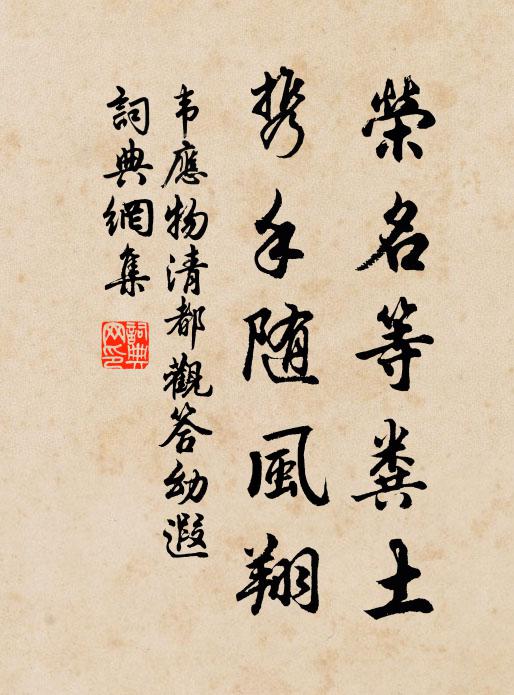 榮名等糞土
携手随風翔
韦應物清都觀答幼遐
詞典網集
詞典网印